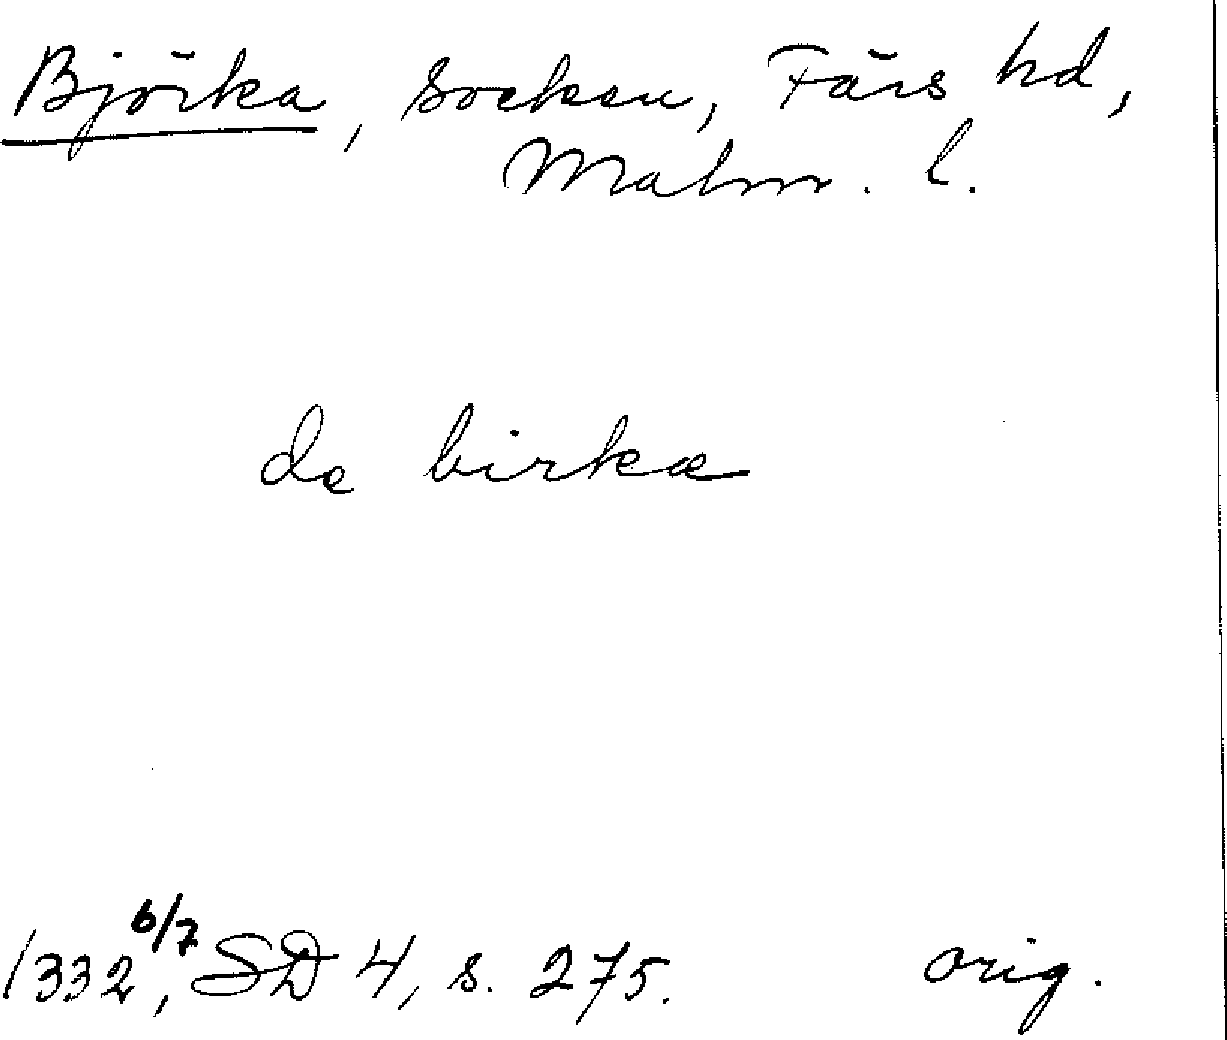 Björka, socken, Färs hd,
Malm. l.
de birkæ
1332 6/7, SD 4, s. 275. orig.